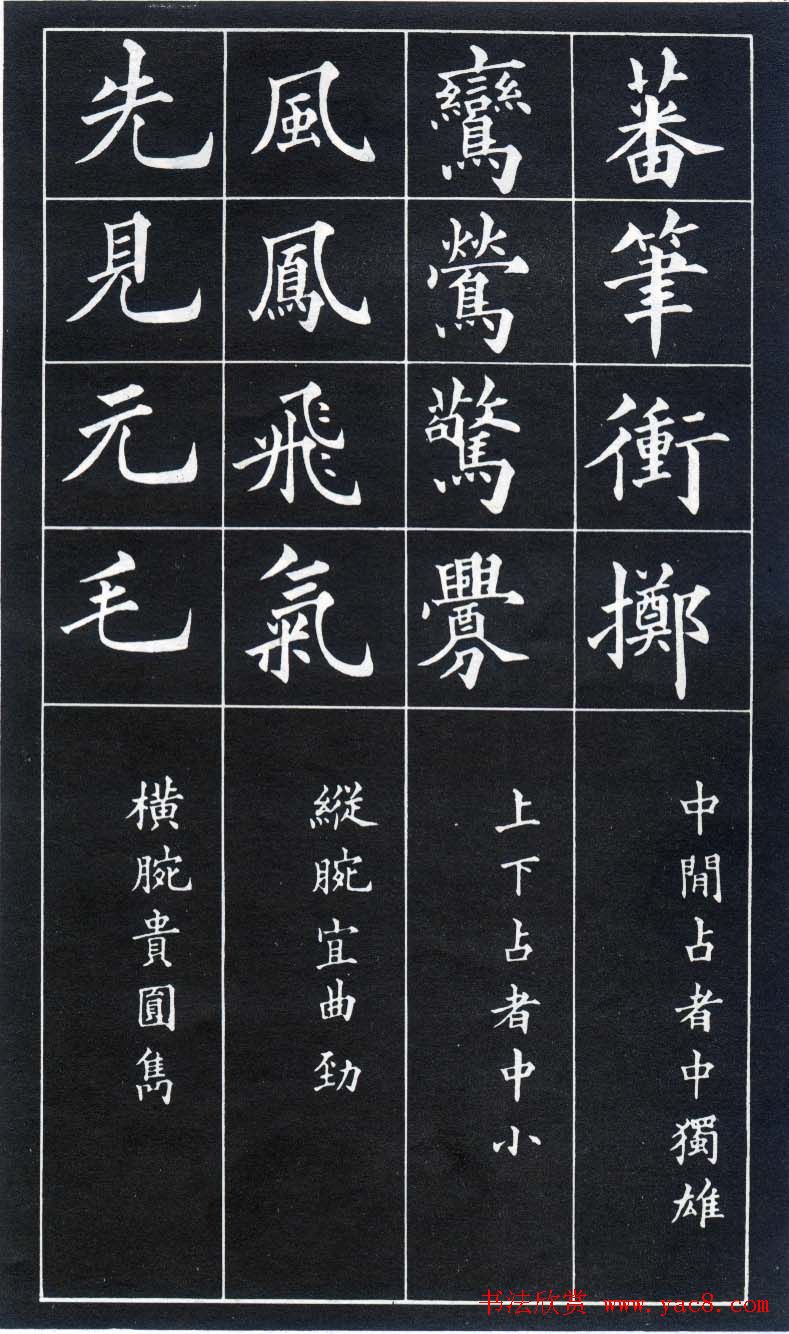 蕃筆衝擲
中閒占者中獨雄
鸞鶯驚釁
上下占者中小
風鳳飛氣
縱腕宜曲勁
先見元毛
橫腕貴圓雋
书法欣赏 www.yac8.com